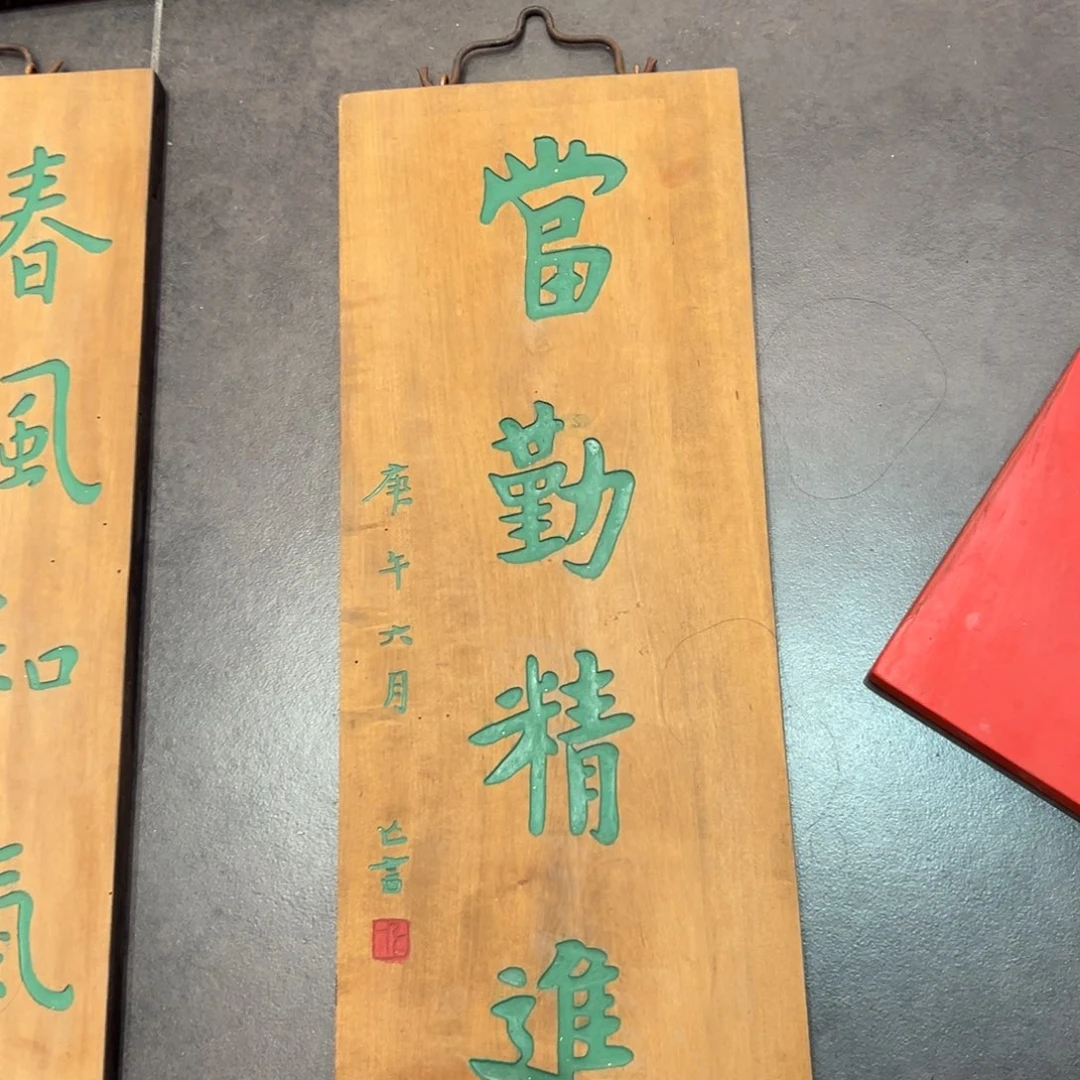 當勤精進
庚午六月
春風和氣